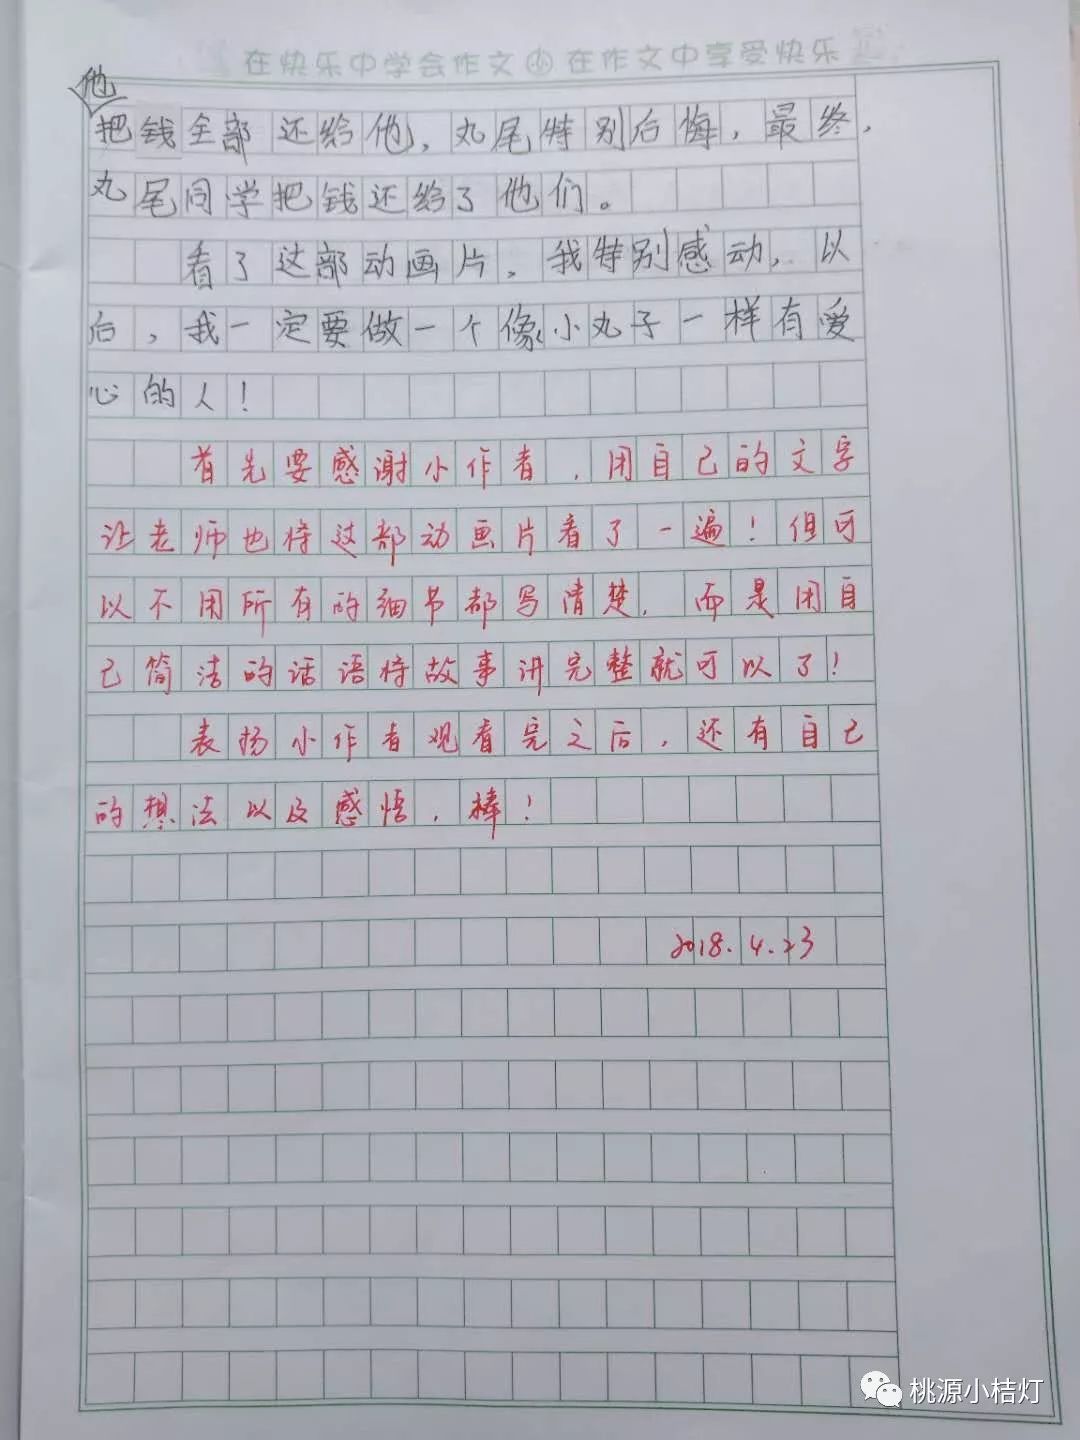 在快乐中学会作文 在作文中享受快乐
他
把钱全部还给他,丸尾特别后悔,最终,
丸尾同学把钱还给了他们。
看了这部动画片,我特别感动,以
后,我一定要做一个像小丸子一样有爱
心的人!
首先要感谢小作者,用自己的文字
让老师也将这部动画片看了一遍!但可
以不用所有的细节都写清楚,而是用自
己简洁的话语将故事讲完整就可以了!
表扬小作者观看完之后,还有自己
的想法以及感悟,棒!
2018.4.23
桃源小桔灯